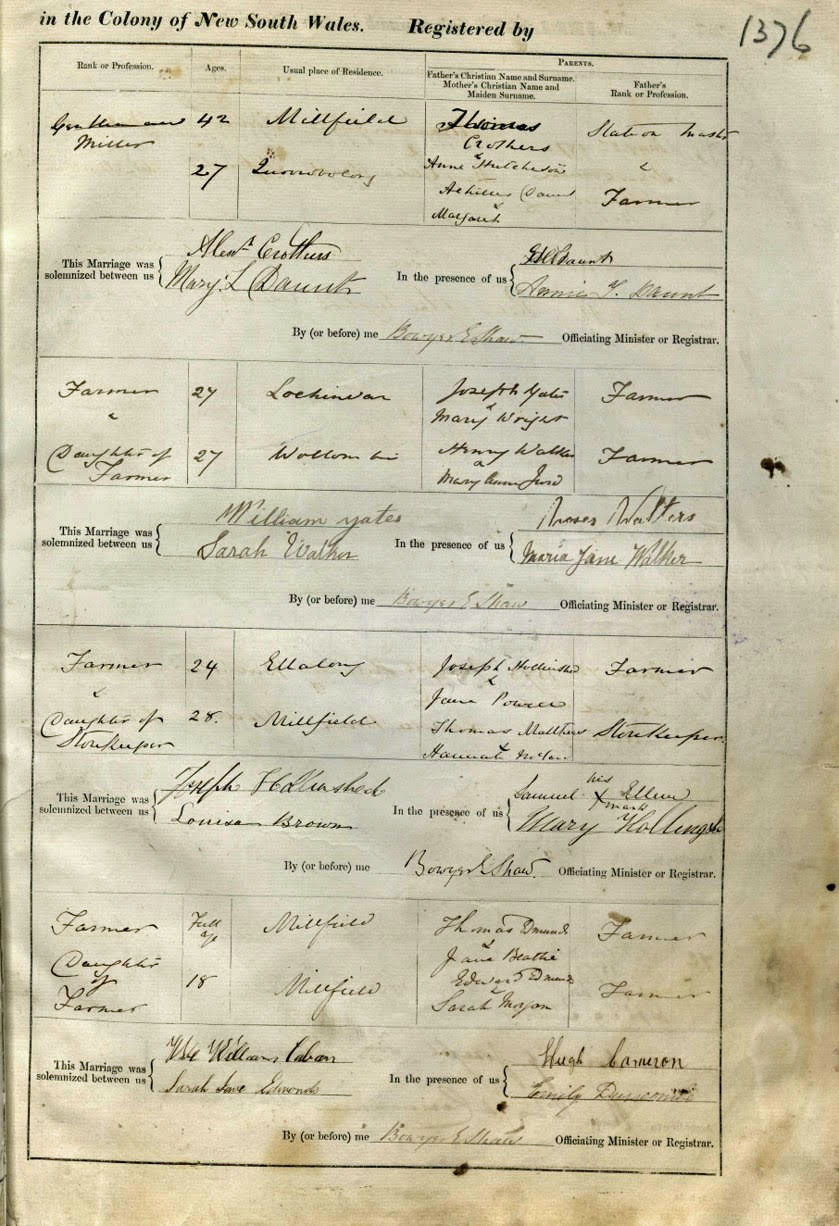 in the Colony of New South Wales. Registered by
1376
Rank or Profession. Ages. Usual place of Residence. PARENTS.
Father's Christian Name and Surname. Mother's Christian Name and Maiden Surname. Father's Rank or Profession.
42 Millfield Thomas Station
Miller Crothers
27 Anne
Achilles Daunt Farmer
Margaret
This Marriage was solemnized between us { Alexr Crothers
Mary L Daunt
In the presence of us { Daunt
Annie Daunt
By (or before) me Bowyer E Shaw Officiating Minister or Registrar.
Farmer 27 Lochinvar Joseph Yates Farmer
" & Mary Wright
Daughter of 27 Henry Farmer
Farmer & Mary Anne
This Marriage was solemnized between us { William Yates
Sarah Walker
In the presence of us { Walters
Maria Jane Walker
By (or before) me Bowyer E Shaw Officiating Minister or Registrar.
Farmer 24 Ellalong Joseph Farmer
& Jane Powell
Daughter of 28. Millfield Thomas Matthews Storekeeper.
Storekeeper Hannah
This Marriage was solemnized between us { Joseph
Louisa Brown
In the presence of us { Samuel his X mark
Mary
By (or before) me Bowyer E Shaw. Officiating Minister or Registrar.
Farmer Full age Millfield Thomas Farmer
Daughter & Jane Beattie
of 18 Millfield Edward Farmer
Farmer Sarah
This Marriage was solemnized between us { William
Sarah Jane Edmonds
In the presence of us { Hugh Cameron
Emily
By (or before) me Bowyer E Shaw Officiating Minister or Registrar.